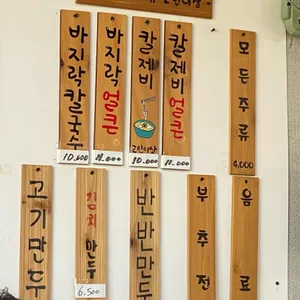 바지락칼국수
10.000
바지락얼큰
11.000
칼제비
2인이상
10.000
칼제비얼큰
11.000
모든주류
4,000
고기만두
김치만두
6.500
반반만두
부추전
음료